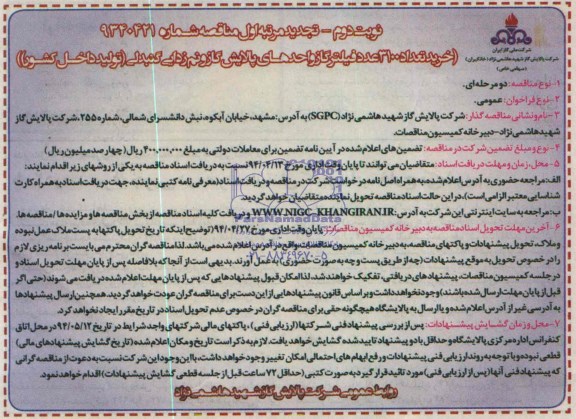 نوبت دوم – تجدید مرتبه اول مناقصه شماره ۹۳۴۰۴۲۱
(خرید تعداد ۳۱۰۰ عدد فیلتر گاز واحدهای پالایش گاز و نم زدایی گنبدلی (تولید داخل کشور))
شرکت ملی گاز ایران
شرکت پالایش گاز شهید هاشمی نژاد (خانگیران)
(سهامی خاص)
۱- نوع مناقصه: دو مرحله‌ای.
۲- نوع فراخوان: عمومی.
۳- نام و نشانی مناقصه گذار: شرکت پالایش گاز شهید هاشمی نژاد (SGPC) به آدرس: مشهد، خیابان آبکوه، نبش دانشسرای شمالی، شماره ۲۵۵، شرکت پالایش گاز
شهید هاشمی نژاد- دبیرخانه کمیسیون مناقصات.
۴- نوع و مبلغ تضمین شرکت در مناقصه: تضمین های اعلام شده در آیین نامه تضمین برای معاملات دولتی به مبلغ ۴۰۰,۰۰۰,۰۰۰ ریال (چهارصد میلیون ریال)
۵- محل، زمان و مهلت دریافت اسناد: متقاضیان می توانند تا پایان وقت اداری مورخ ۹۴/۰۴/۱۳ نسبت به دریافت اسناد مناقصه به یکی از روشهای زیر اقدام نمایند:
الف: مراجعه حضوری به آدرس اعلام شده، به همراه اصل نامه درخواست شرکت در مناقصه و دریافت اسناد (معرفی نامه کتبی نماینده، جهت دریافت اسناد به همراه کارت
شناسایی معتبر الزامی است). در این حالت اسناد مناقصه تحویل نماینده متقاضیان خواهد گردید.
ب: مراجعه به سایت اینترنتی این شرکت به آدرس: WWW.NIGC-KHANGIRAN.IR و دریافت کلیه اسناد مناقصه از بخش مناقصه ها و مزایده ها / مناقصه ها.
۶- آخرین مهلت تحویل اسناد مناقصه به دبیرخانه کمیسیون مناقصات: پایان وقت اداری مورخ ۹۴/۰۴/۲۷ (توضیح اینکه تاریخ تحویل پاکتها به پست ملاک عمل نبوده
و ملاک، تحویل پیشنهادات و پاکتهای مناقصه به دبیرخانه کمیسیون مناقصات واقع در آدرس اعلام شده می باشد. لذا مناقصه گران محترم می بایست برنامه ریزی لازم
را در خصوص تحویل به موقع پیشنهادات (چه از طریق پست و چه به صورت حضوری) به عمل آورند. بدیهی است از آنجا که بلافاصله پس از پایان مهلت تحویل اسناد و
در جلسه کمیسیون مناقصات، پیشنهادهای دریافتی، تفکیک خواهند شد، لذا امکان قبول پیشنهادهایی که پس از پایان مهلت اعلام شده دریافت می شوند (حتی اگر
قبل از پایان مهلت ارسال شده باشند) وجود نخواهد داشت و بر اساس قانون پیشنهادهایی از این دست برای مناقصه گران عودت خواهد گردید. همچنین ارسال پیشنهادها
به آدرسی غیر از آدرس اعلام شده و یا ارسال به پالایشگاه هیچگونه حقی برای مناقصه گران در خصوص عدم تحویل اسناد در تاریخ مقرر ایجاد نخواهد کرد.
۷- محل و زمان گشایش پیشنهادات: پس از بررسی پیشنهاد فنی شرکتها (ارزیابی فنی)، پاکتهای مالی شرکتهای واجد شرایط در تاریخ ۹۴/۰۵/۱۲ در محل اتاق
کنفرانس اداره مرکزی پالایشگاه و حداقل با دو پیشنهاد تایید شده گشایش خواهد یافت. لازم به ذکر است تاریخ و مکان اعلام شده (تاریخ گشایش پیشنهادهای مالی)
قطعی نبوده و با توجه به روند ارزیابی فنی پیشنهادات و رفع ابهام های احتمالی امکان تغییر وجود خواهد داشت، با این وجود این شرکت نسبت به دعوت از مناقصه گرانی
که پیشنهاد فنی آنها (پس از ارزیابی فنی) مورد تائید قرار گیرد به صورت کتبی (حداقل ۷۲ ساعت قبل از جلسه قطعی گشایش پیشنهادات) اقدام خواهد نمود.
روابط عمومی شرکت پالایش گاز شهید هاشمی نژاد